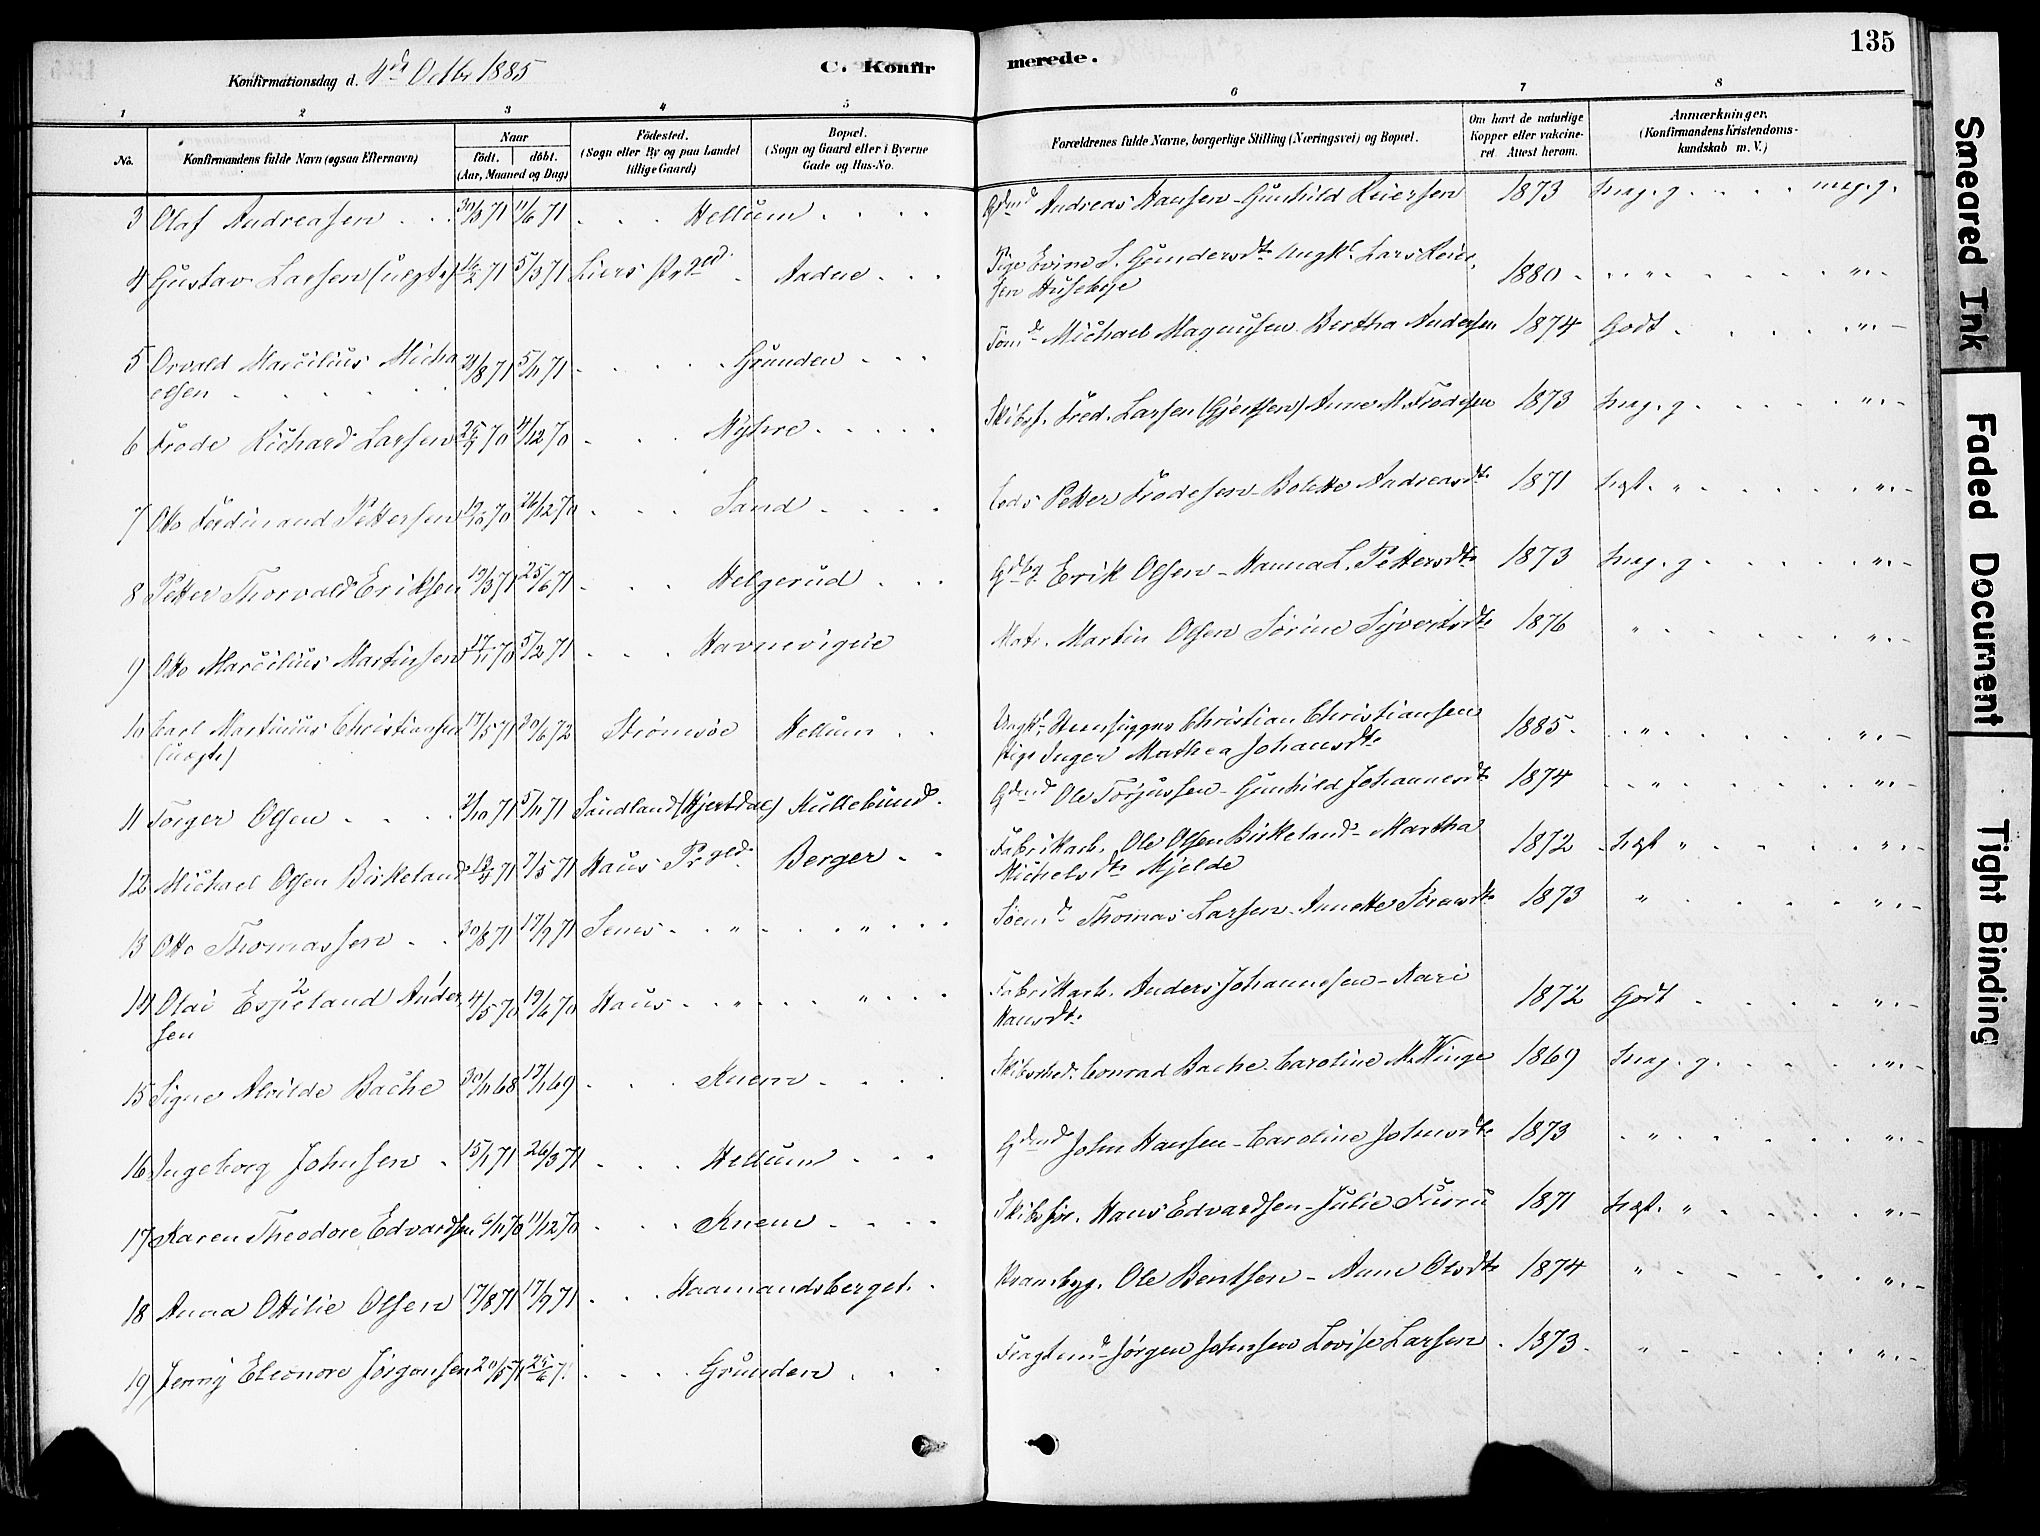 135
Konfirmationsdag d. 4de Octbr 1885
C. Konfirmerede.
1 2 3 4 5 6 7 8
No.
Konfirmandens fulde Navn (ogsaa Efternavn)
Naar
födt. döbt.
(Aar, Maaned og Dag)
Födested.
(Sogn eller By og paa Landet
tillige Gaard)
Bopæl.
(Sogn og Gaard eller i Byerne
Gade og Hus-No.
Forældrenes fulde Navne, borgerlige Stilling (Næringsvei) og Bopæl.
Om havt de naturlige
Kopper eller vakcine-
ret. Attest herom.
Anmærkninger.
(Konfirmandens Kristendoms-
kundskab m. V.)
3 Olaf Andreasen 11/6 71 Hellum Gdmd Andreas Hansen - Gunhild Reiersen 1873 meg. g. meg. g.
4 Gustav Larsen (uægte) 16/2 71 5/3 71 Liers Prgd. Aadne Pige Evine L. Gundersdtr Ungk. Lars Reier-
sen Husebye 1880 " "
5 Orvald Marcilius Micha
elsen 21/8 71 5/11 71 Grunden Tømd Michael Magnusen Bertha Andersen 1874 Godt "
6 Frode Richard Larsen 25/9 70 11/12 70 Nyhre Skibsf. Fred. Larsen (Gjertsen) Anne M. Frodesen 1873 meg. g. "
7 Otto Ferdinand Pettersen 19/10 70 26/12 70 Sand Lods Petter Frodesen - Bolette Andreasdtr 1871 "
8 Petter Thorvald Eriksen 19/3 71 25/6 71 Helgerud Gdbg. Erik Olsen - Hanna L. Pettersdtr 1873 meg. g. "
9 Otto Marcilius Martinsen 17/11 70 5/2 71 Havnevigne Matr. Martin Olsen Sørine Syvertsdtr 1876 " "
10 Carl Martinius Christiansen
(uægte) 17/5 71 30/6 72 Strømsøe Hellum Ungk. Stenhugger Christian Christiansen
Pige Inger Mathea Johansdtr 1885 " "
11 Torger Olsen 2/10 71 5/11 71 Sandland (Hjertdal) Kullebund Gdmd Ole Torjussen - Gunhild Johannesdtr 1874 " "
12 Michael Olsen Birkeland 7/5 71 Haus Prgld. Berger Fabrikarb. Ole Olsen Birkeland - Martha
Michelsdtr Mjelde 1872 "
13 Otto Thomassen 30/8 71 17/9 71 Sems " " Søemd Thomas Larsen - Annette Sørensdtr 1873 " "
14 Olai Espeland Ander
sen 4/5 70 19/6 70 Haus " " Fabrikarb. Anders Johannesen - Kari
Hansdtr 1872 Godt "
15 Signe Alvilde Bache 30/11 68 17/1 69 Knem Skibsrhed. Conrad Bache. Caroline M. Winge 1869 meg. g. "
16 Ingeborg Johnsen 15/1 71 26/3 71 Hellum Gdmd John Hansen - Caroline Johnsdtr 1873 " "
17 Karen Theodore Edvardsen 6/11 70 11/12 70 Knem Skibsfør. Hans Edvardsen - Julie Furru 1871 "
18 Anna Ottilie Olsen 17/8 71 17/9 71 Haamandsberget Krambyg. Ole Bentsen - Anne Olsdtr 1874 " "
19 Jenny Eleonore Jørgensen 20/5 71 25/6 71 Grunden Fragtmd Jørgen Johnsen Lovise Larsen 1873 " "
Smeared Ink
Faded Document
Tight Binding